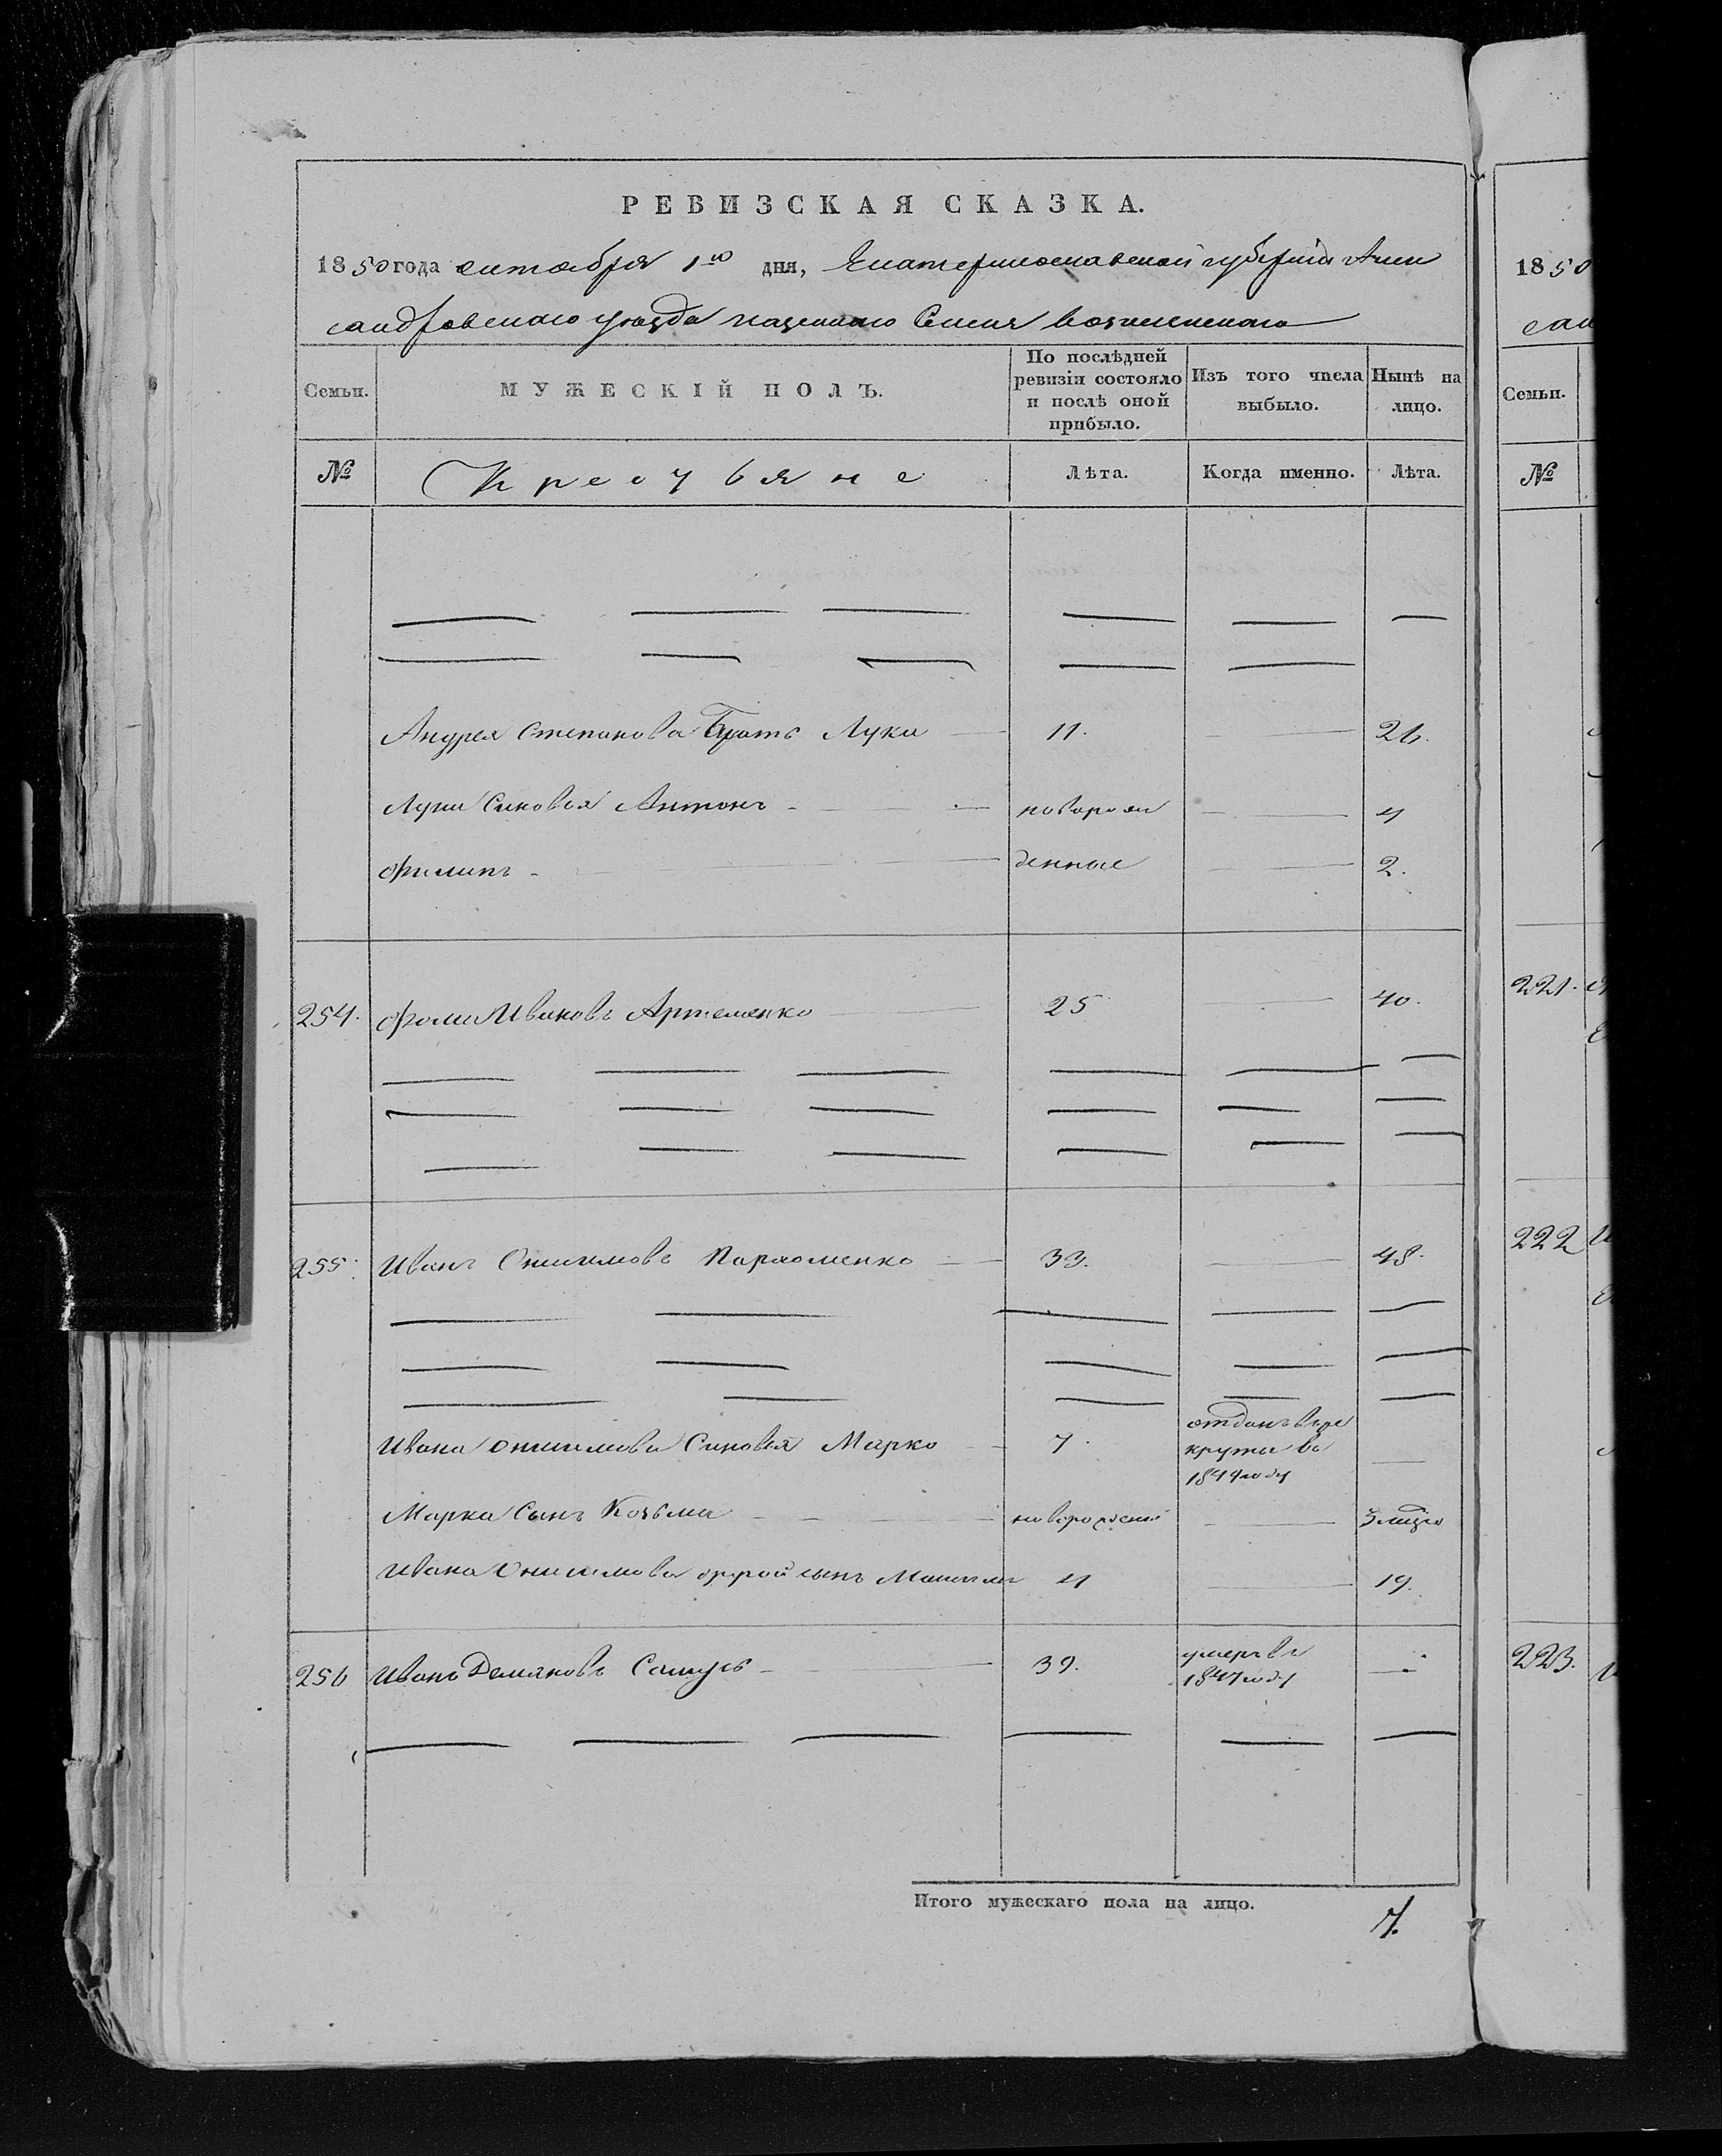 РЕВИЗСКАЯ СКАЗКА.
1850 года октября 1го дня, Екатеринославской губернии Алек
сандровскаго уезда казеннаго Селения Вознесенскаго
Семьи. МУЖЕСКІЙ ПОЛЪ. По послѣдней ревизіи состояло и послѣ оной прибыло. Изъ того числа выбыло. Нынѣ на лицо.
№ Крестьяне Лѣта. Когда именно. Лѣта.
Андрея Степанова Братъ Лука 11. 26.
Луки Сыновья Антонъ новорож 4
Филипъ денные 2.
254. Фома Ивановъ Артеменко 25 40.
255. Иванъ Онисимовъ Пархоменко 33. 48.
Ивана Онисимова Сыновья Марко 7. отданъ въ ре
круты въ
1849 году
Марка Сынъ Козьма новорожденный 3 
Ивана Онисимова другой сынъ 4 19.
256 Иванъ Демяновъ 39. умеръ въ
1847 году
Итого мужескаго пола на лицо. 7.
1850
сан
Семьи.
№
221.
222
223.